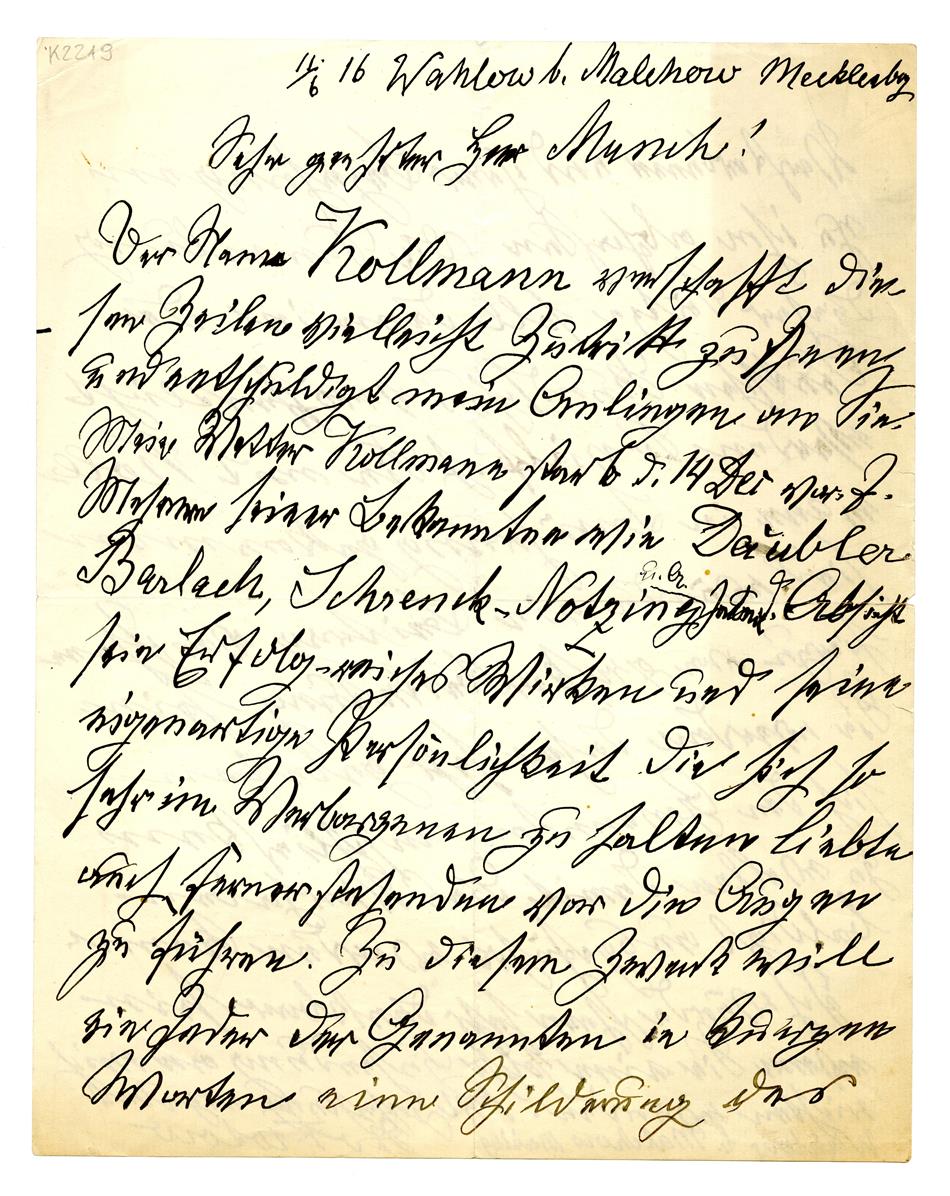 K2249
11./6 16 Wahlow b. Malchow Mecklenbg
Sehr geehrter Herr Munch!
Der Name Kollmann verschafft die-
sen Zeilen vielleicht Zutritt zu Ihnen
und entschuldigt mein Anliegen an Sie.
Mein Vetter Kollmann starb d. 14 Dec vor. J.
Mehrere seiner Bekannten wie Däubler
Barlach, Schrenck-Notzing haben d. Absicht
sein Erfolg-reiches Wirken und seine
eigenartige Persönlichkeit die sich so
sehr im Verborgenen zu halten liebte
auch Fernerstehenden vor die Augen
zu führen. Zu diesem Zweck will
ein Jeder der Genannten in kurzen
Worten eine Schilderung des